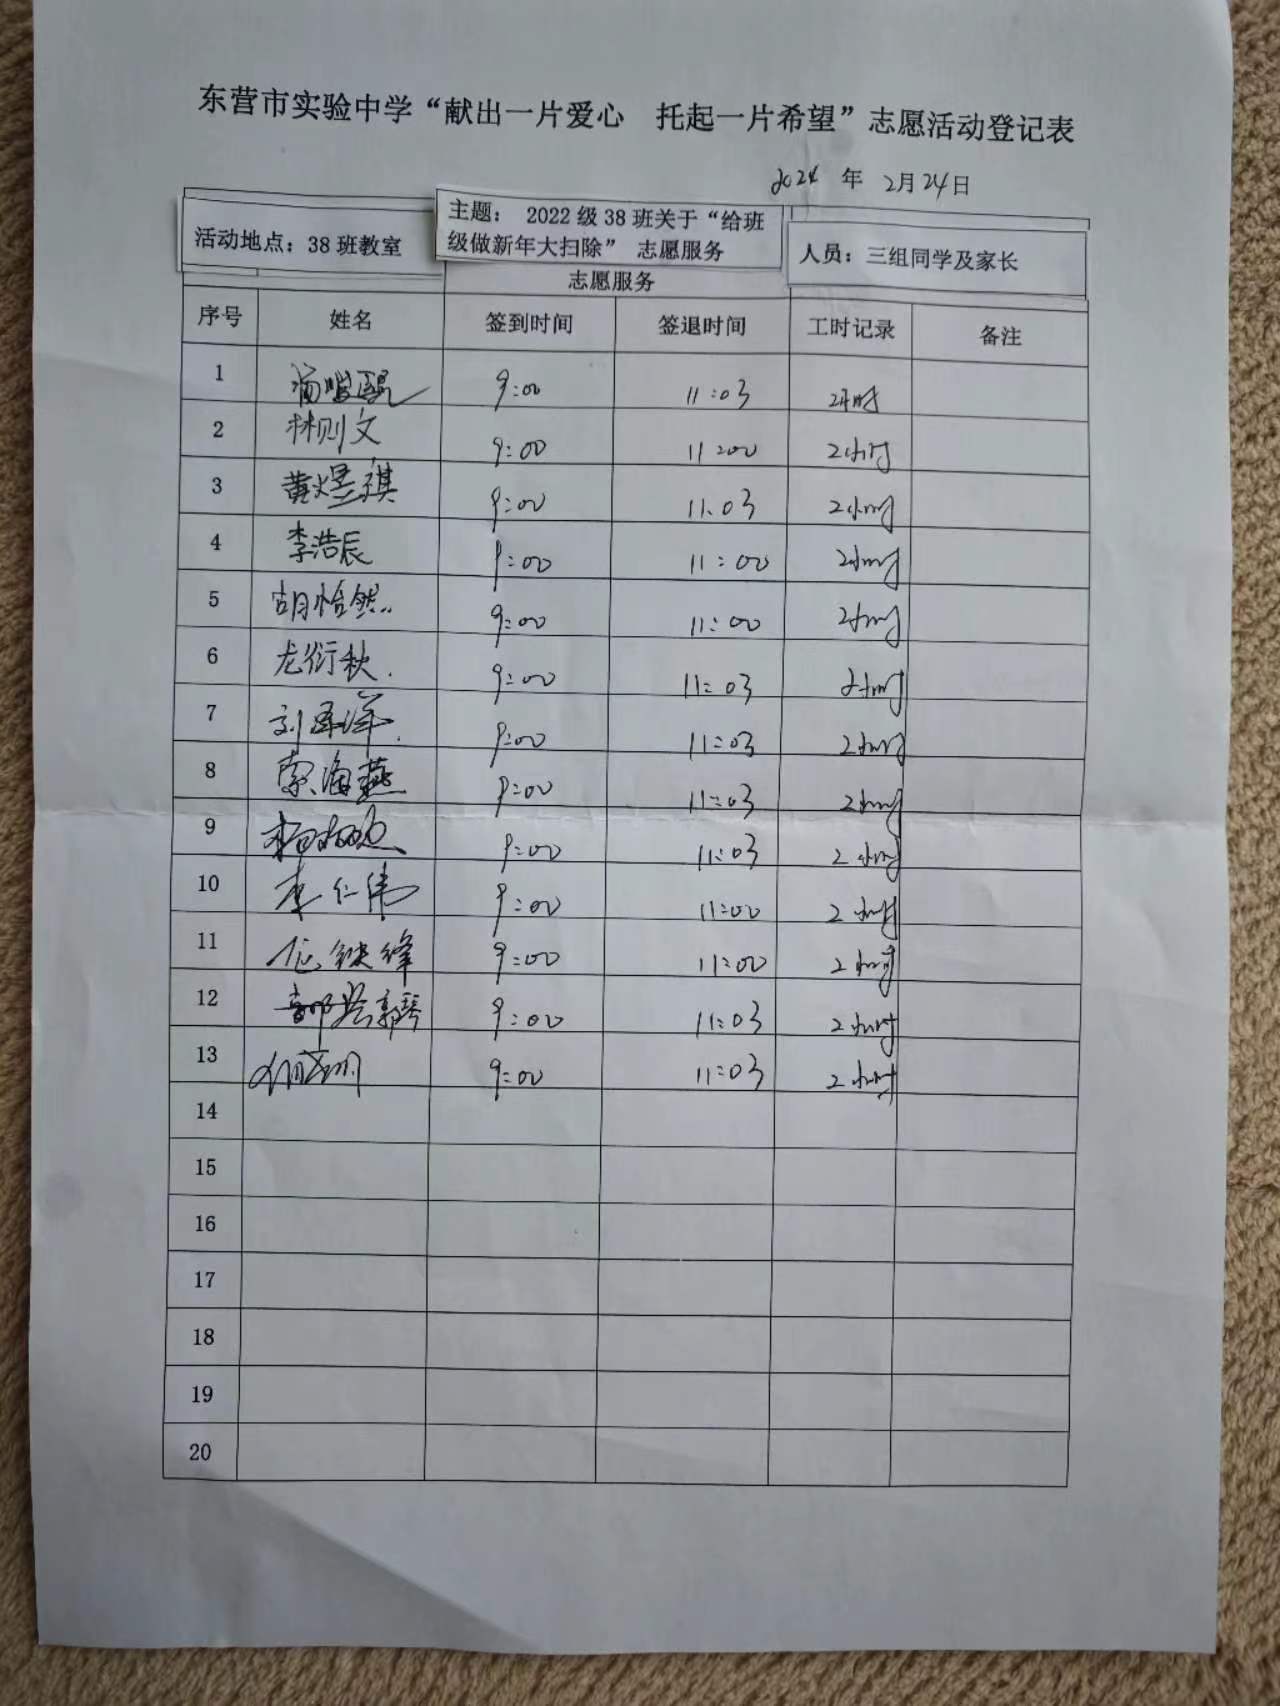 东营市实验中学“献出一片爱心 托起一片希望”志愿活动登记表
2024 年 2月24日
活动地点：38班教室
主题： 2022级38班关于“给班
级做新年大扫除” 志愿服务
人员：三组同学及家长
志愿服务
序号 姓名 签到时间 签退时间 工时记录 备注
1 9:00 11:03 2小时
2 林则文 9:00 11:00 2小时
3 黄煜祺 9:00 11:03 2小时
4 李浩辰 9:00 11:00 2小时
5 胡怡然 9:00 11:00 2小时
6 龙衍秋 9:00 11:03 2小时
7 刘泽洋 9:00 11:03 2小时
8 索海燕 9:00 11:03 2小时
9 9:00 11:03 2小时
10 李仁伟 9:00 11:00 2小时
11 9:00 11:00 2小时
12 郭琴 9:00 11:03 2小时
13 9:00 11:03 2小时
14
15
16
17
18
19
20